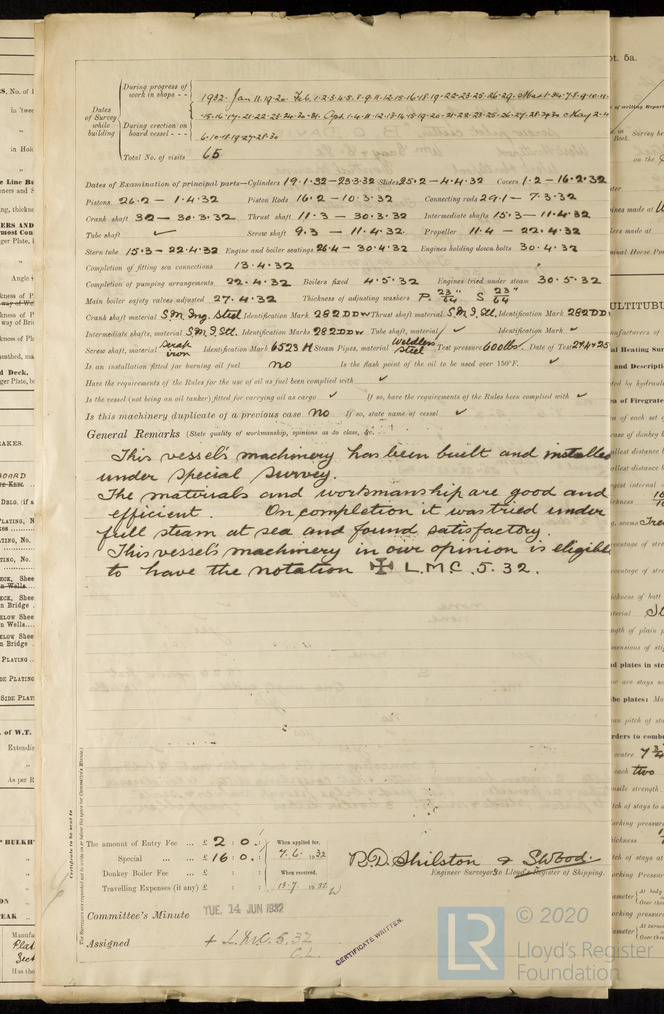 During progress of work in shops - -
1932. Jan 11.19.20. Feb. 1.2.3.4.5.8.9.11.12.15.16.18.19.22.23.25.26.29.
15.16.17.21.22.23.24.30.31. Apl. 1.4.11.12.13.14.15.19.20.
Dates of Survey while building
During erection on board vessel - - -
6.10.18.19.27.28.30
Total No. of visits 65
Dates of Examination of principal parts—Cylinders 19.1.32–23.3.32 Slides 25.2–4.4.32 Covers 1.2–16.2.32
Pistons 26.2 – 1.4.32 Piston Rods 16.2–10.3.32 Connecting rods 29.1– 7.3.32
Crank shaft 30.3.32 Thrust shaft 11.3 – 30.3.32 Intermediate shafts 15.3–11.4.32
Tube shaft ✓ Screw shaft 9.3 – 11.4.32 Propeller 11.4 – 22.4.32
Stern tube 15.3–22.4.32 Engine and boiler seatings 26.4–30.4.32 Engines holding down bolts 30.4.32
Completion of fitting sea connections 13.4.32
Completion of pumping arrangements 22.4.32 Boilers fixed 4.5.32 Engines tried under steam 30.5.32
Main boiler safety valves adjusted 27.4.32 Thickness of adjusting washers P. 23/64" S 23/64"
Crank shaft material S.M. Ing. Steel Identification Mark 282DDW Thrust shaft material S.M.I.Stl. Identification Mark 282DD
Intermediate shafts, material S.M.I.Stl. Identification Marks 282DDW Tube shaft, material ✓ Identification Mark ✓
Screw shaft, material Scrap iron Identification Mark 6523H Steam Pipes, material Weldless Steel Test pressure 600 lbs. Date of Test
Is an installation fitted for burning oil fuel no Is the flash point of the oil to be used over 150°F. ✓
Have the requirements of the Rules for the use of oil as fuel been complied with ✓
Is the vessel (not being an oil tanker) fitted for carrying oil as cargo ✓ If so, have the requirements of the Rules been complied with ✓
Is this machinery duplicate of a previous case no If so, state name of vessel ✓
General Remarks (State quality of workmanship, opinions as to class, &c.
This vessel's machinery has been built and installed
under special survey.
The materials and workmanship are good and
efficient. On completion it was tried under
full steam at sea and found satisfactory.
This vessel's machinery in our opinion is eligible
to have the notation ✠ L.M.C. 5.32.
Certificate to be sent to
The amount of Entry Fee ... £ 2 : 0 : When applied for,
Special ... £ 16 : 0 : 7.6.1932
Donkey Boiler Fee ... £ : : When received,
Travelling Expenses (if any) £ : : 13.7.1932
R.D. Shilston & S. Wood.
Engineer Surveyors to Lloyd's Register of Shipping.
Committee's Minute TUE. 14 JUN 1932
Assigned + L.M.C. 5.32
C.L.
CERTIFICATE WRITTEN.
LR
© 2020
Lloyd's Register
Foundation